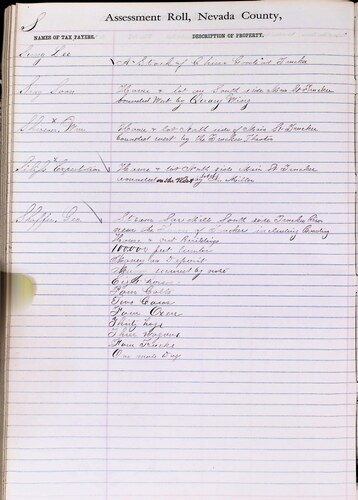 S
Assessment Roll, Nevada County,
NAMES OF TAX PAYERS.
DESCRIPTION OF PROPERTY.
Sung Lee
A Stock of China Goods at Truckee
Sing Sam
House & lot on South side Main St Truckee
bounded West by Quay Wing
Wm
House & lot South side of Main St Truckee
bounded west by the Truckee
House & lot South side Main St Truckee
bounded on the West by Miller
Shaffer Geo
Steam Sawmill South side Truckee River
near the Town of Truckee including
House & out Buildings
100,000 feet Lumber
Money on Deposit
Money secured by note
Eight horses
Four Colts
Two Cows
Four Oxen
Thirty hogs
Three Wagons
Four Trucks
One male Dog